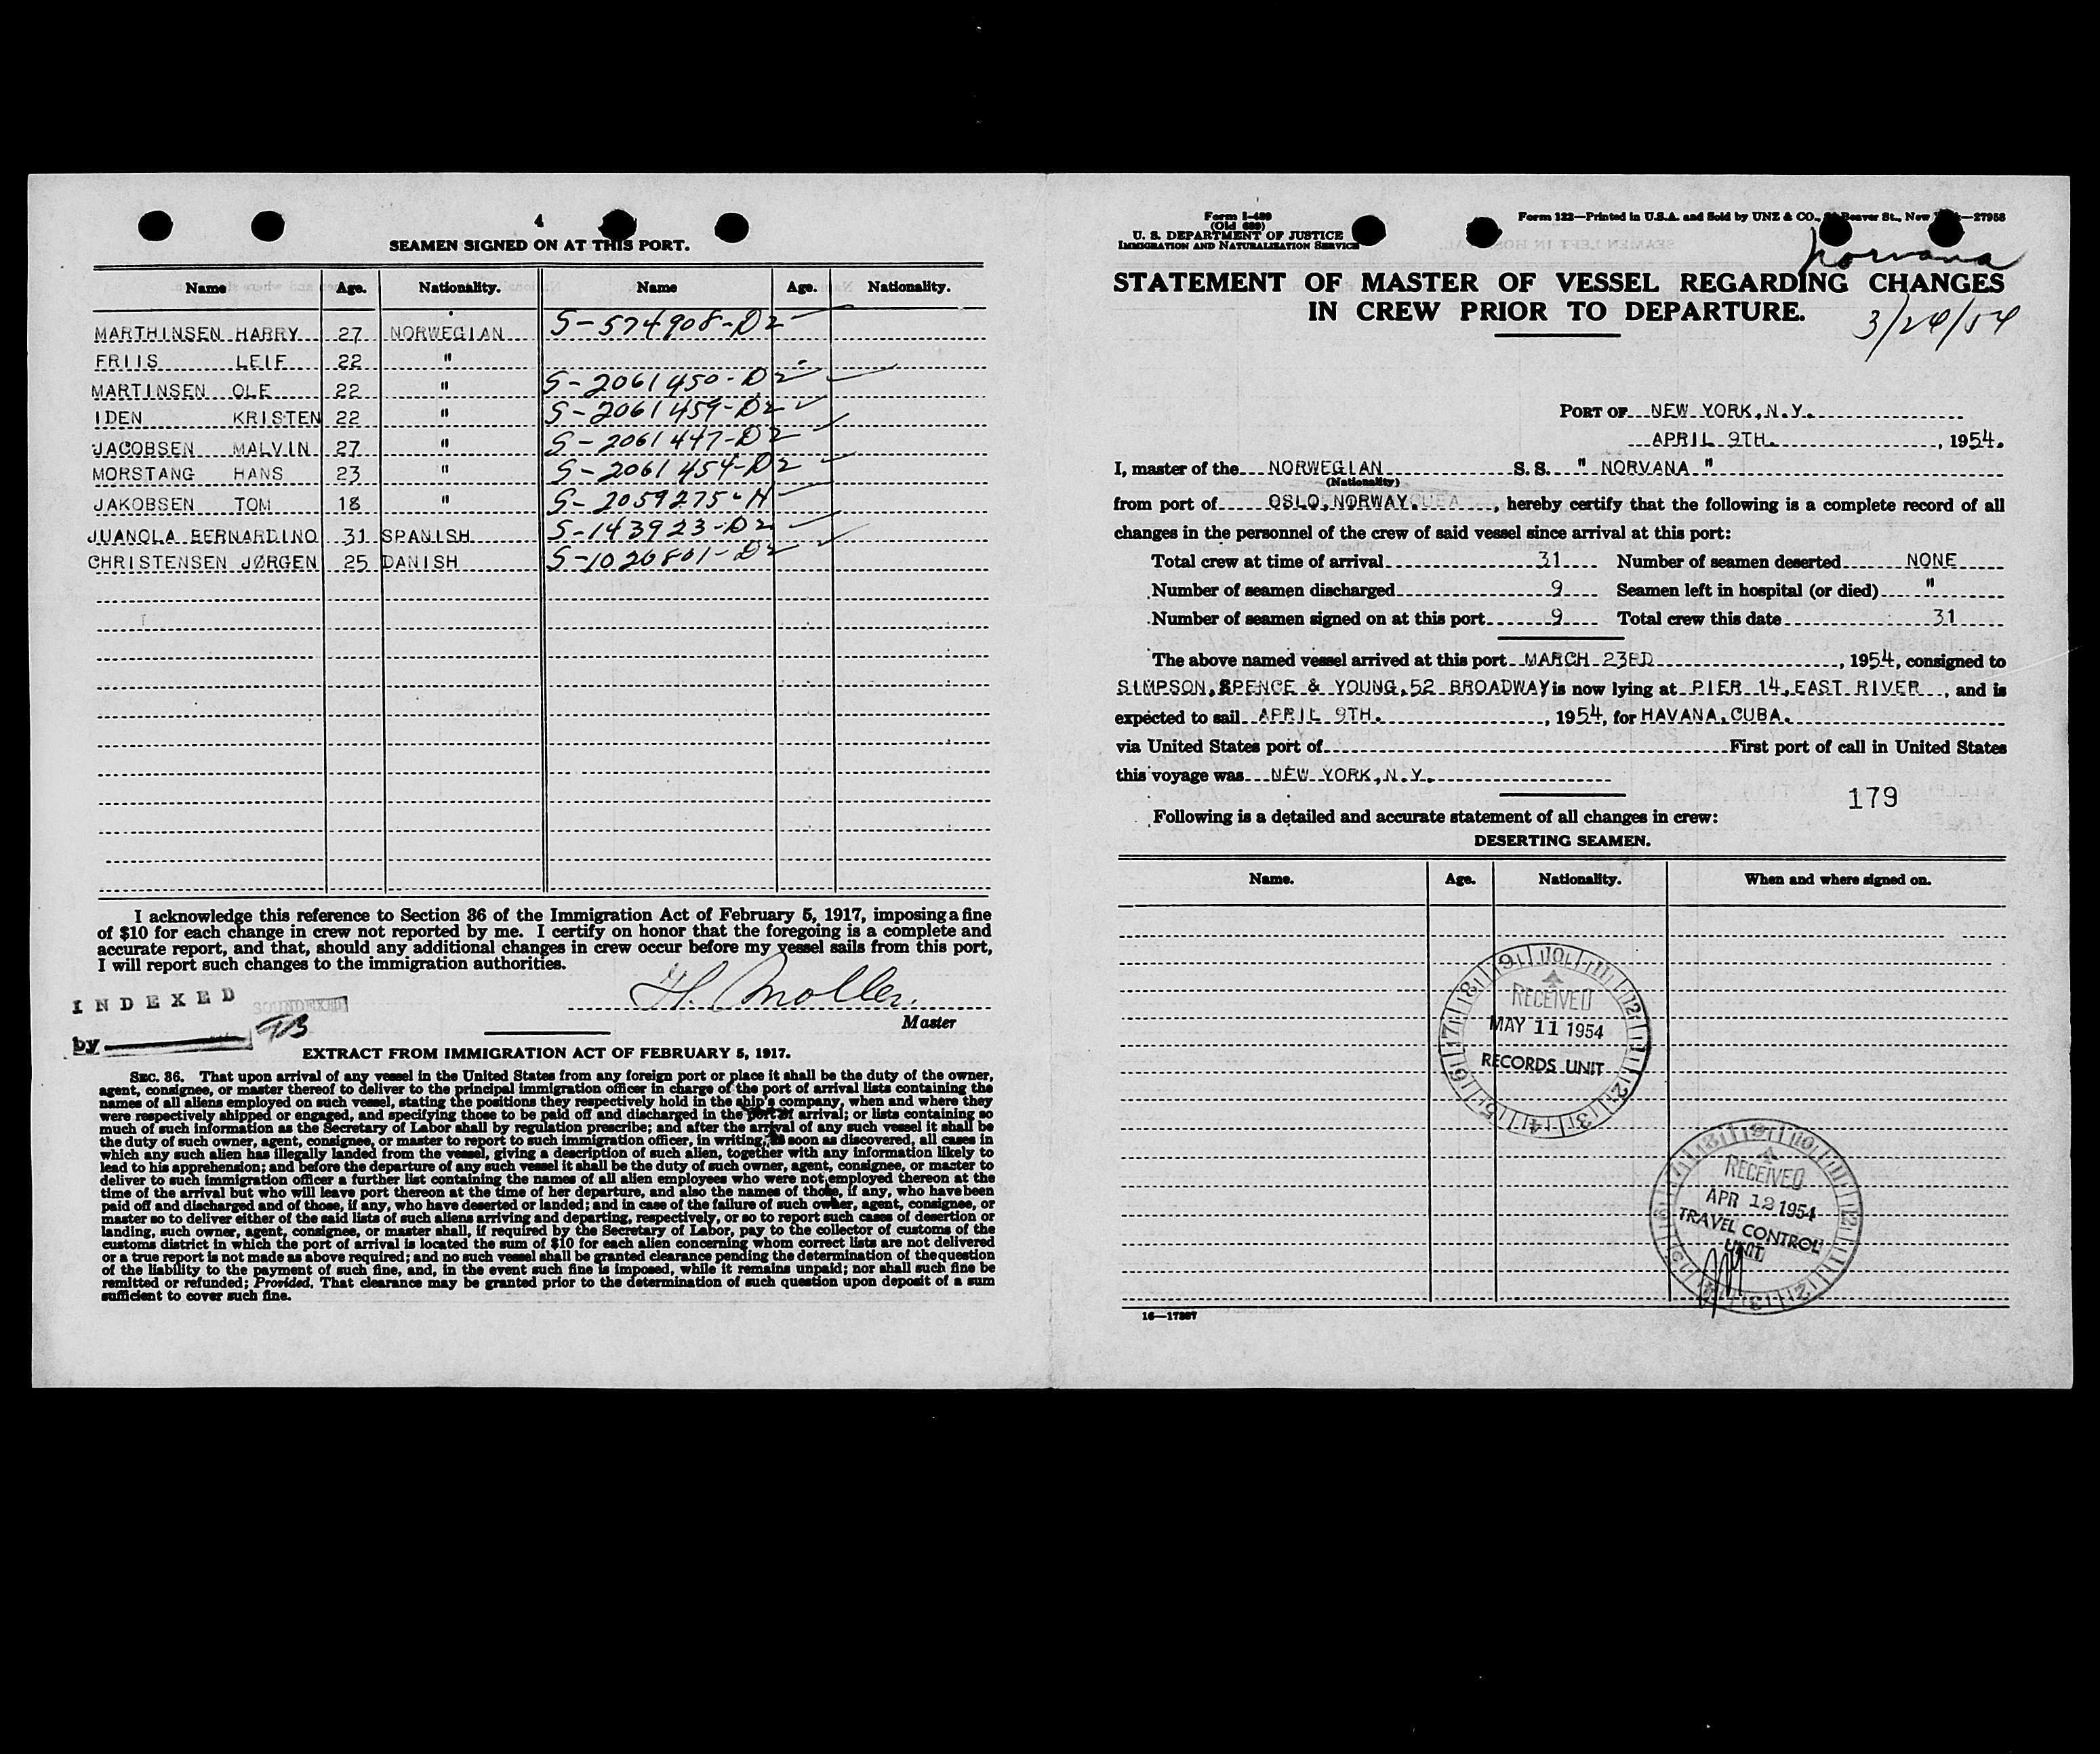 4
SEAMEN SIGNED ON AT THIS PORT.
Name Age. Nationality. Name Age. Nationality.
MARTHINSEN HARRY 27 NORWEGIAN S-574908-D2
FRIIS LEIF 22 "
MARTINSEN OLE 22 " S-2061450-D2
IDEN KRISTEN 22 " S-2061459-D2
JACOBSEN MALVIN 27 " S-2061447-D2
MORSTANG HANS 23 " S-2061454-D2
JAKOBSEN TOM 18 " S-2059275-H
JUANOLA BERNARDINO 31 SPANISH S-143923-D2
CHRISTENSEN JØRGEN 25 DANISH S-1020801-D2
I acknowledge this reference to Section 36 of the Immigration Act of February 5, 1917, imposing a fine
of $10 for each change in crew not reported by me. I certify on honor that the foregoing is a complete and
accurate report, and that, should any additional changes in crew occur before my vessel sails from this port,
I will report such changes to the immigration authorities.
H. Moller.
Master
INDEXED SOUNDEXED
by TB
EXTRACT FROM IMMIGRATION ACT OF FEBRUARY 5, 1917.
SEC. 36. That upon arrival of any vessel in the United States from any foreign port or place it shall be the duty of the owner,
agent, consignee, or master thereof to deliver to the principal immigration officer in charge of the port of arrival lists containing the
names of all aliens employed on such vessel, stating the positions they respectively hold in the ship's company, when and where they
were respectively shipped or engaged, and specifying those to be paid off and discharged in the port of arrival; or lists containing so
much of such information as the Secretary of Labor shall by regulation prescribe; and after the arrival of any such vessel it shall be
the duty of such owner, agent, consignee, or master to report to such immigration officer, in writing, as soon as discovered, all cases in
which any such alien has illegally landed from the vessel, giving a description of such alien, together with any information likely to
lead to his apprehension; and before the departure of any such vessel it shall be the duty of such owner, agent, consignee, or master to
deliver to such immigration officer a further list containing the names of all alien employees who were not employed thereon at the
time of the arrival but who will leave port thereon at the time of her departure, and also the names of those, if any, who have been
paid off and discharged and of those, if any, who have deserted or landed; and in case of the failure of such owner, agent, consignee, or
master so to deliver either of the said lists of such aliens arriving and departing, respectively, or so to report such cases of desertion or
landing, such owner, agent, consignee, or master shall, if required by the Secretary of Labor, pay to the collector of customs of the
customs district in which the port of arrival is located the sum of $10 for each alien concerning whom correct lists are not delivered
or a true report is not made as above required; and no such vessel shall be granted clearance pending the determination of the question
of the liability to the payment of such fine, and, in the event such fine is imposed, while it remains unpaid; nor shall such fine be
remitted or refunded; Provided, That clearance may be granted prior to the determination of such question upon deposit of a sum
sufficient to cover such fine.
Form I-489
(Old 689)
U. S. DEPARTMENT OF JUSTICE
IMMIGRATION AND NATURALIZATION SERVICE
Form 122—Printed in U.S.A. and Sold by UNZ & CO., Beaver St., New —27958
Norvana
STATEMENT OF MASTER OF VESSEL REGARDING CHANGES
IN CREW PRIOR TO DEPARTURE.
3/24/54
PORT OF NEW YORK, N.Y.
APRIL 9TH. , 1954.
I, master of the NORWEGIAN S. S. " NORVANA "
(Nationality)
from port of OSLO, NORWAY. , hereby certify that the following is a complete record of all
changes in the personnel of the crew of said vessel since arrival at this port:
Total crew at time of arrival 31 Number of seamen deserted NONE
Number of seamen discharged 9 Seamen left in hospital (or died) "
Number of seamen signed on at this port 9 Total crew this date 31
The above named vessel arrived at this port MARCH 23ED , 1954, consigned to
SIMPSON, SPENCE & YOUNG, 52 BROADWAY is now lying at PIER 14, EAST RIVER , and is
expected to sail APRIL 9TH. , 1954, for HAVANA, CUBA.
via United States port of First port of call in United States
this voyage was NEW YORK, N.Y.
179
Following is a detailed and accurate statement of all changes in crew:
DESERTING SEAMEN.
Name. Age. Nationality. When and where signed on.
RECEIVED
MAY 11 1954
RECORDS UNIT
RECEIVED
APR 12 1954
TRAVEL CONTROL
UNIT
16—17897